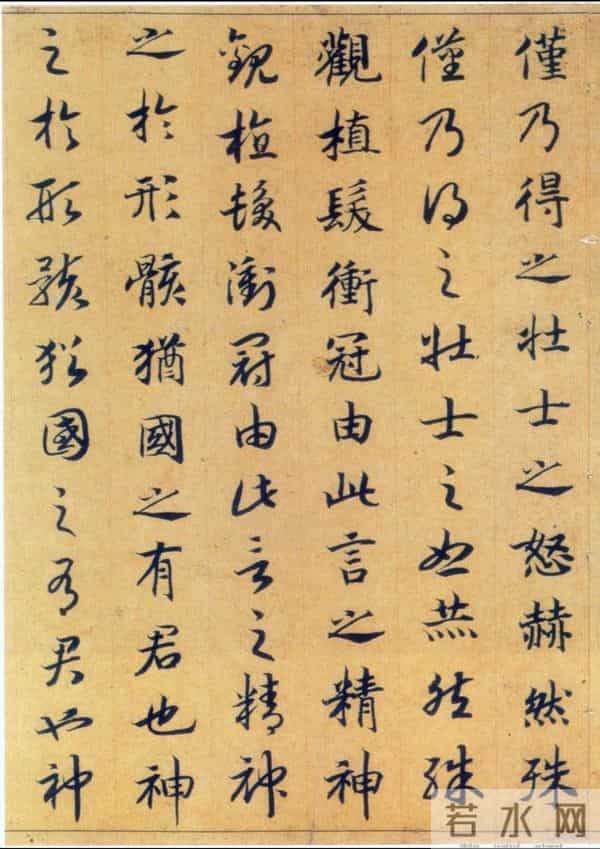 僅乃得之壯士之怒赫然殊
僅乃得之壯士之怒赫然殊
觀植髮衝冠由此言之精神
觀植髮衝冠由此言之精神
之於形骸猶國之有君也神
之於形骸猶國之有君也神
若水网